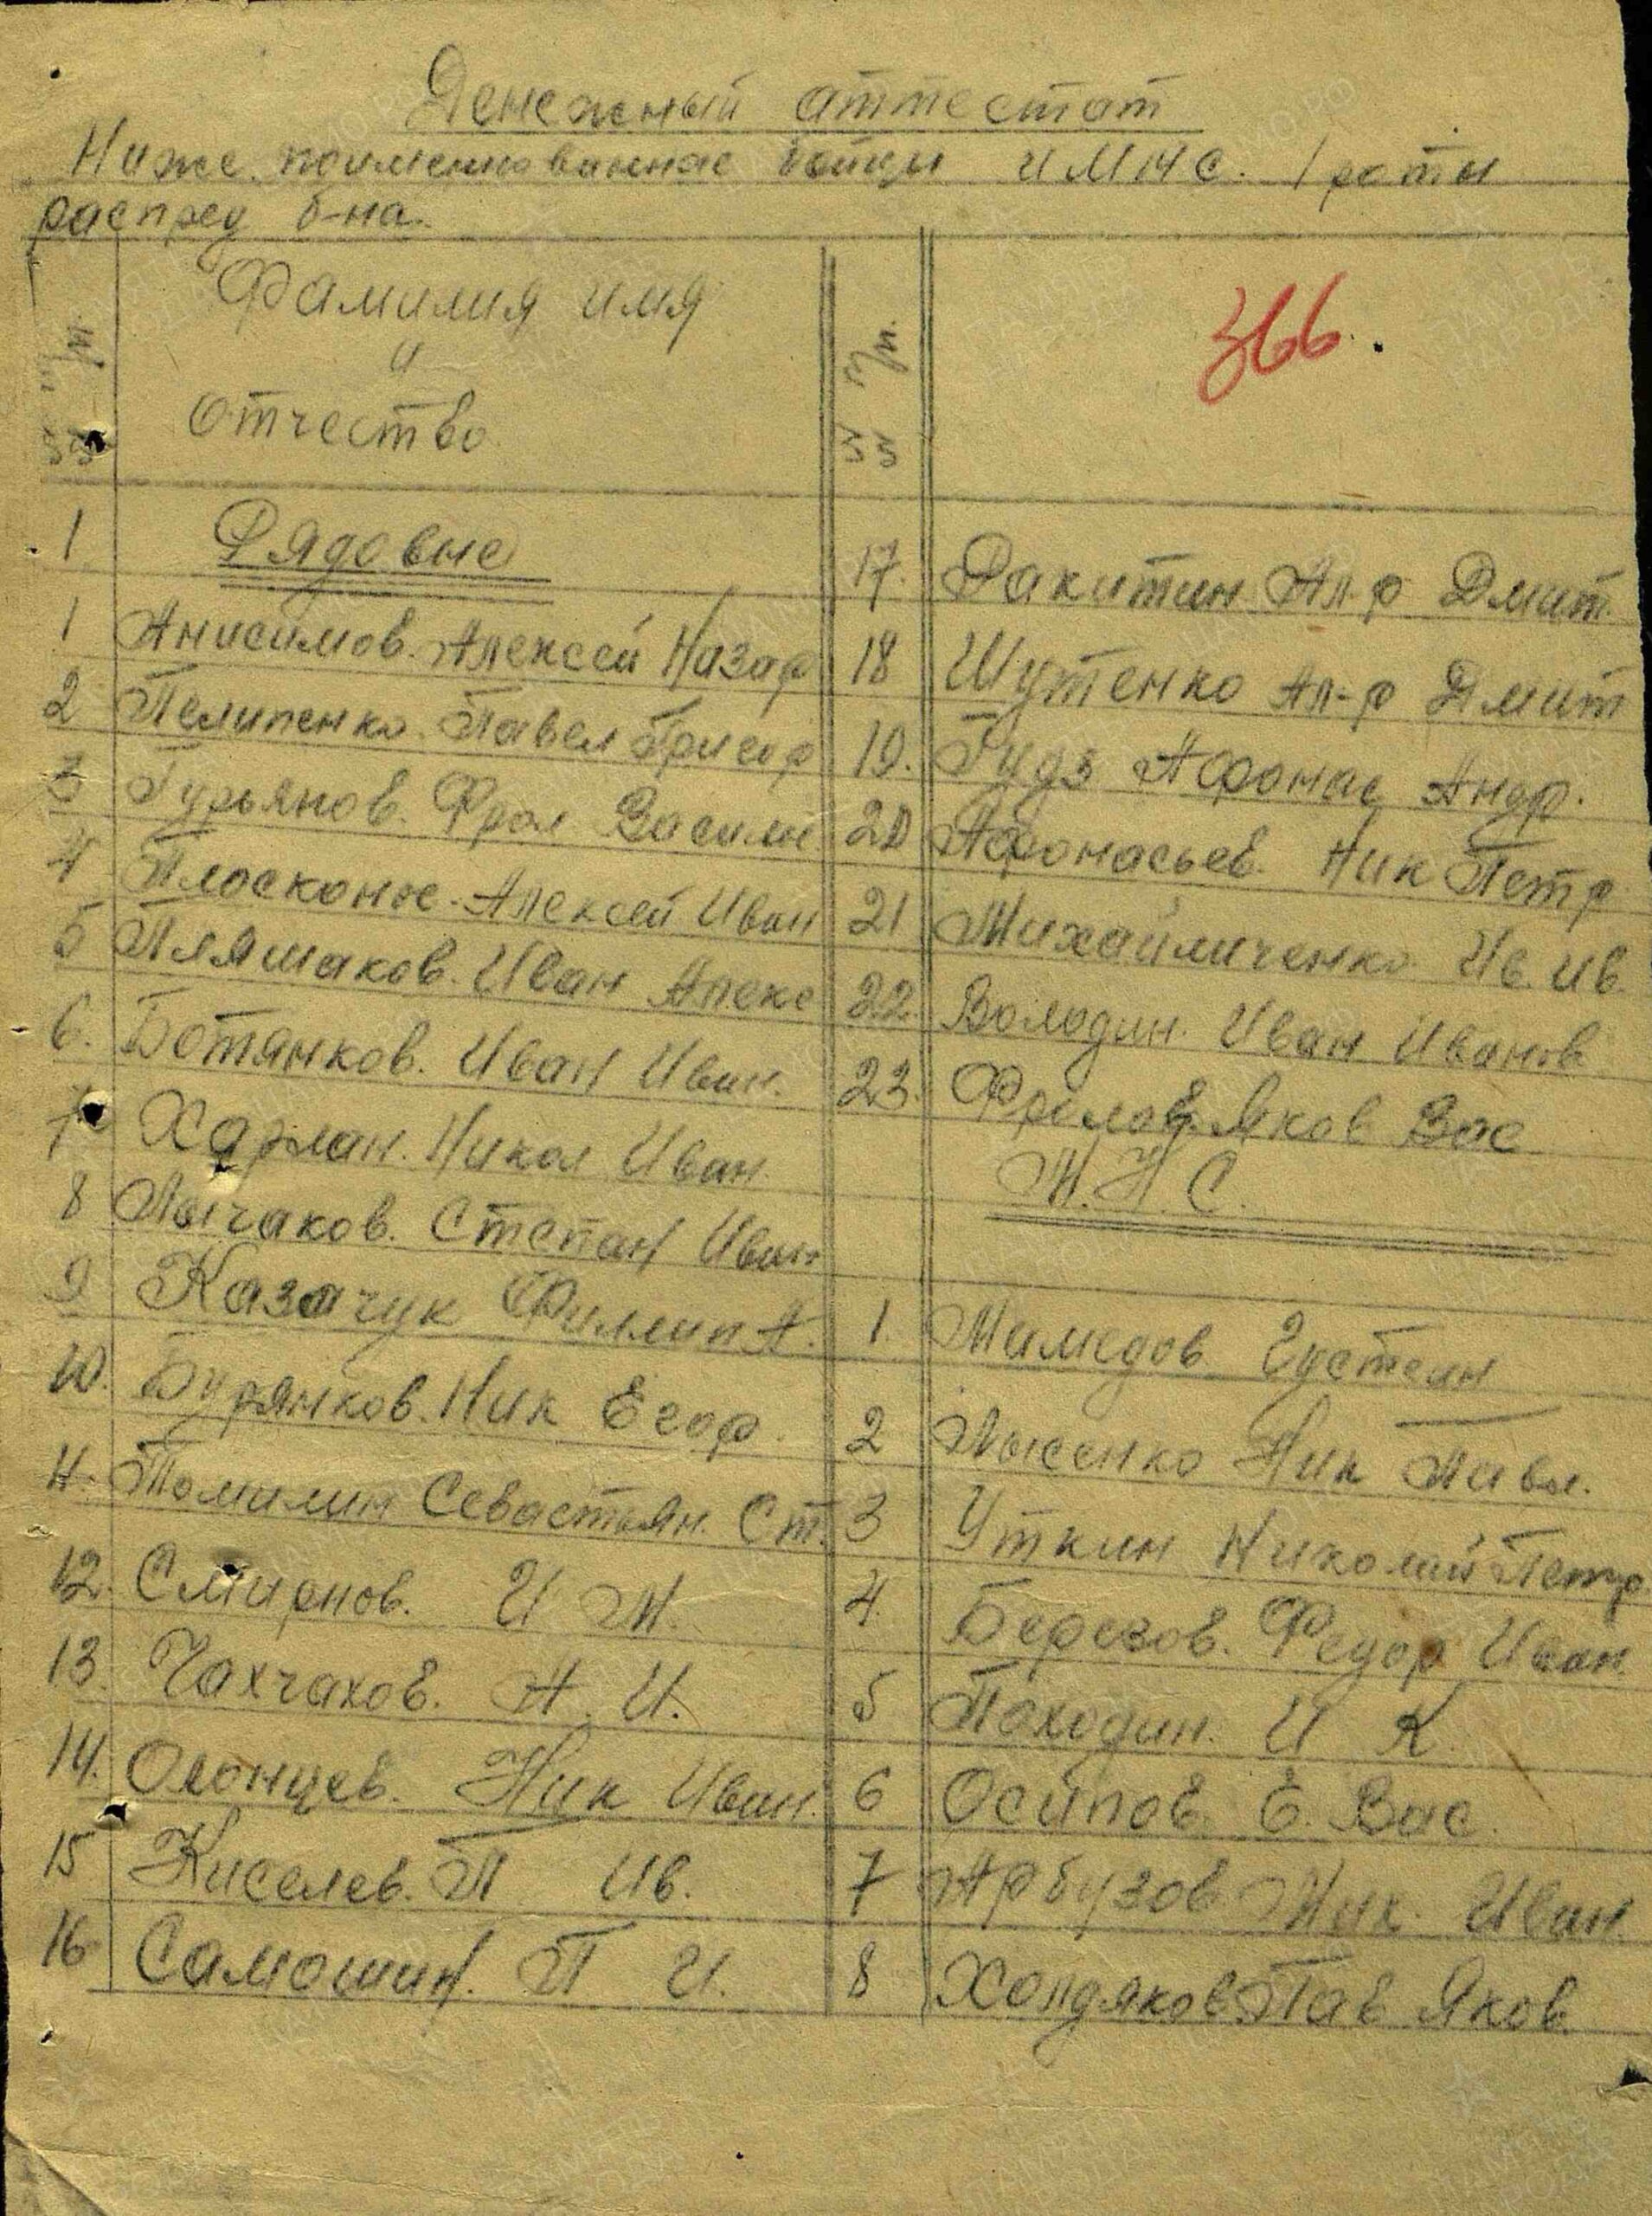 Денежный аттестат
Ниже поименованные бойцы и МНС. 1 роты
распред б-на.
Фамилия имя
и
отчество
№№ п/п.
№№ п/п.
366.
1 Рядовые
1 Анисимов. Алексей Назар
2 Пелипенко. Павел Григор
3 Гурьянов. Фрол Васили
4 Плосконос. Алексей Иван
5 Пляшаков. Иван Алекс
6. Ботянков. Иван Иван.
7 Харлан. Никол Иван.
8 Лычаков. Степан Иван
9 Казачук Филлип А.
10. Бурянков. Ник Егор.
11. Томилин Севастьян. Ст.
12. Смирнов. И М.
13. Чахчахов. А. И.
14. Олонцев. Ник Иван.
15 Киселев. П Ив.
16 Самошин. П И.
17. Ракитин Ал-р Дмит.
18 Шутенко Ал-р Дмит
19. Гудз Афонас Андр.
20 Афонасьев. Ник Петр
21 Михайличенко Ив. Ив.
22. Володин. Иван Иванов
23. Фролов. Яков Вас
М.Н.С.
1. Мамедов Густеин
2 Лысенко Ник Павл.
3 Уткин Николай Петр
4. Березов. Федор Иван.
5 Походин. И К.
6 Осипов. Е. Вас.
7 Арбузов Мих. Иван.
8 Холдяков. Пав Яков.